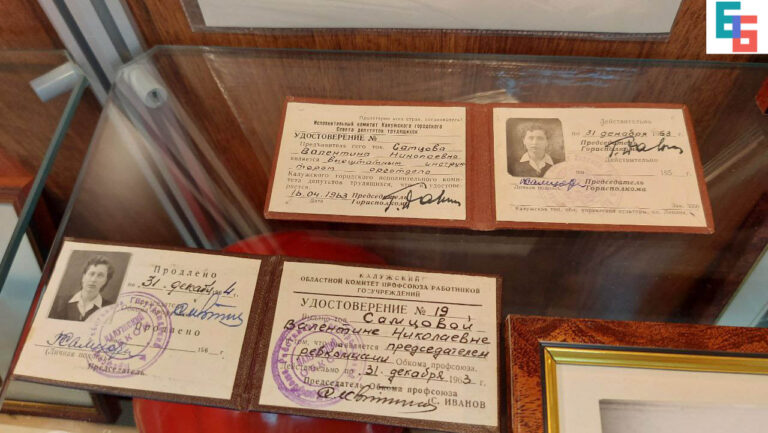 Пролетарии всех стран, соединяйтесь!
Исполнительный комитет Калужского городского
Совета депутатов трудящихся
УДОСТОВЕРЕНИЕ №
Предъявитель сего тов. Самцова
Валентина Николаевна
является внештатным инструк
тором орготдела
Калужского городского исполнительного коми-
тета депутатов трудящихся, что и удостове-
ряется
16.04.1963 Председатель
Дата Горисполкома
Действительно
по 31 декабря 1963
Председатель
Горисполкома
Действительно
по 195 г.
Председатель
Личная подпись Горисполкома
Продлено
по 31 декабря
Продлено
по 196 г.
(Личная подпись)
Председатель
КАЛУЖСКИЙ
ОБЛАСТНОЙ КОМИТЕТ ПРОФСОЮЗА РАБОТНИКОВ
ГОСУЧРЕЖДЕНИЙ
УДОСТОВЕРЕНИЕ № 19
Выдано тов. Самцовой
Валентине Николаевне
в том, что является председателем
ревкомиссии Обкома профсоюза.
Действительно по 31 декабря 1963 г.
Председатель Обкома профсоюза
С. ИВАНОВ